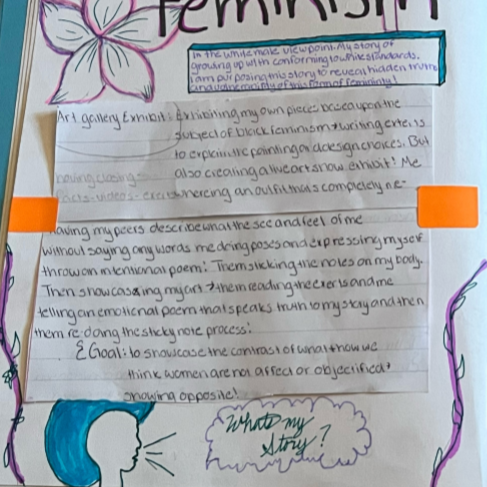 Feminism
In the white male viewpoint. My story of
growing up with conforming to white standards.
I am purposing this story to reveal hidden truths
and vulnerability of this form of femininity!
Art gallery Exhibit: Exhibiting my own pieces based upon the
subject of black feminism + writing exte
to explain the painting and design choices. But
also creating a live art show exhibit! Me
having closing
facts - videos - exerts wherein an outfit that's completely ne
having my peers describe what the see and feel of me
without saying any words me doing poses and expressing myself
throw an intentional poem! Them sticking the notes on my body.
Then showcasing my art → them reading the exerts and me
telling an emotional poem that speaks truth to my story and then
them re-doing the sticky note process!
Goal: to showcase the contrast of what + how we
think women are not affect or objectified,
showing opposite!
What's my
Story?